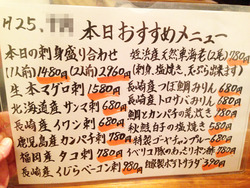 H25.
本日おすすめメニュー
本日の刺身盛り合わせ
(1人前)1480円 (2人前)2960円
生本マグロ刺 1580円
北海道産サンマ刺 680円
長崎産イワシ刺 680円
鹿児島産カンパチ刺 780円
福岡産タコ刺 780円
長崎産くじらベーコン刺 980円
近浜産天然車海老(2尾)780円
(刺身、塩焼き、天ぷら出来ます)
長崎産つぼ鯛みりん 680円
長崎産トロサバみりん 680円
鯛とカンパチの荒炊き 780円
秋鮭ハラの塩焼き 580円
特製ゴーヤチャンプルー 680円
イベリコ豚のあぶりポン酢 780円
自家製ポテトサラダ 390円